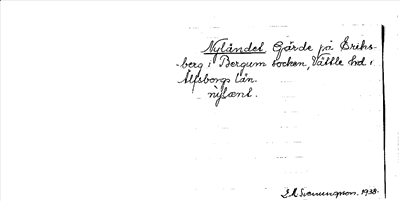 Nylandet Gärde på Eriks-
berg i Bergum socken, Vättle hd,
Älfsborgs län.
nylænt.
1938.